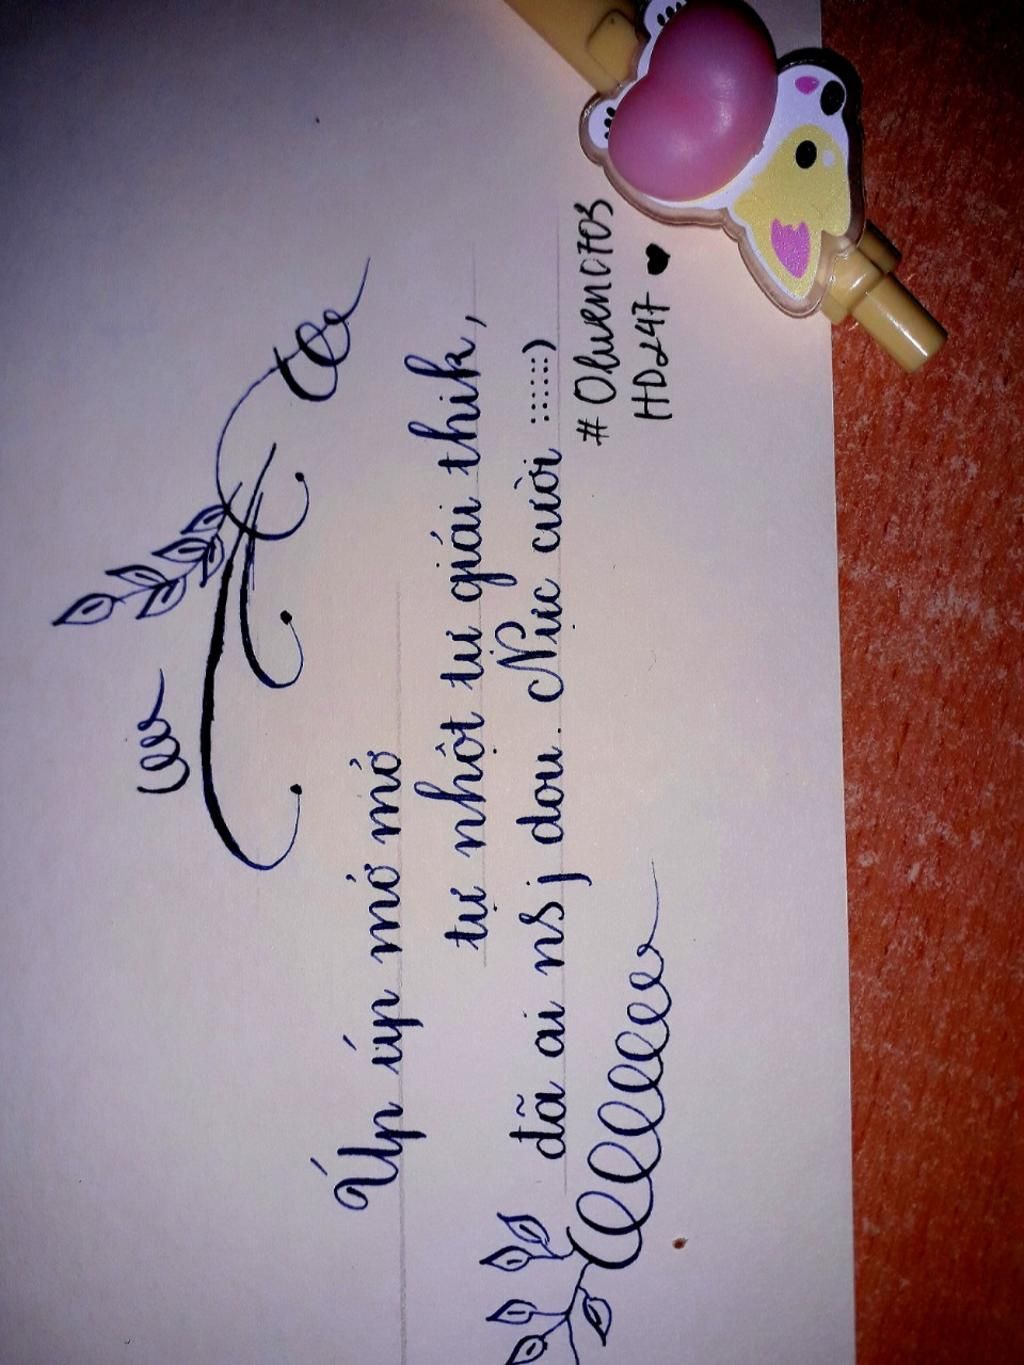 Úp úp mở mở
tự nhột tự giái thik,
đã ai nsj dou. Nực cười ::::::)
#Oluen0703
HD247 ♥